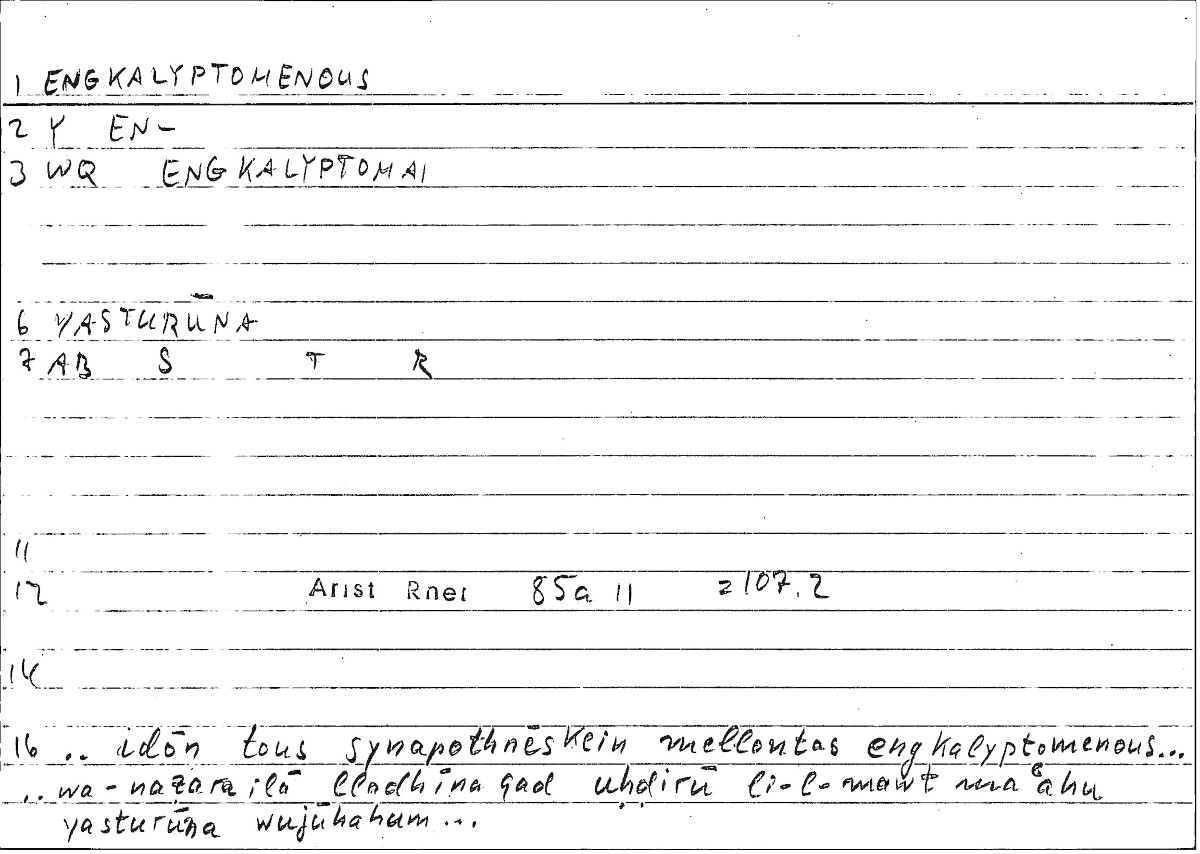 1 ENGKALYPTOMENOUS
2 Y EN-
3 WQ ENGKALYPTOMAI
6 YASTURŪNA
7 AB S T R
11
12 Arist Rhet 85a 11 = 107.2
14
16 .. idōn tous synapothnēskein mellontas engkalyptomenous...
.. wa-naẓara ilā lladhīna qad uḥḍirū li-l-mawt maʿahu
yasturūna wujūhahum ...